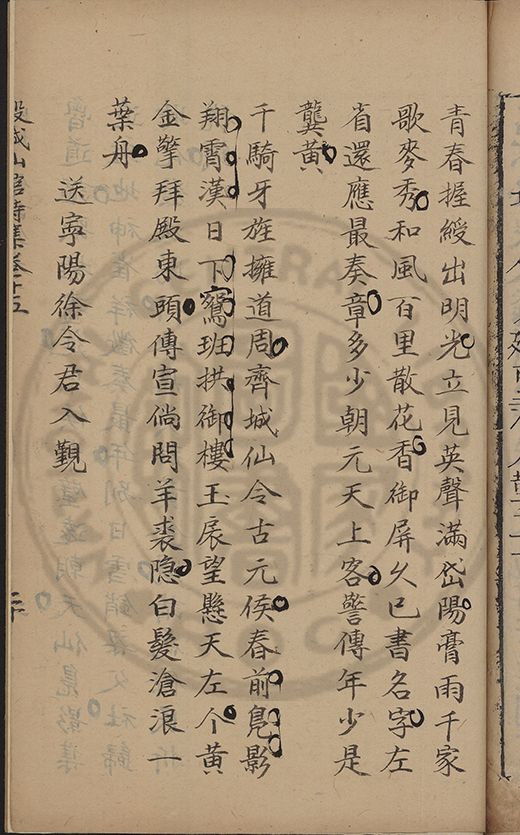 青春握綬出明光立見英聲滿岱陽膏雨千家
歌麥秀和風百里散花香御屏久已書名字左
省還應最奏章多少朝元天上客驚傳年少是
龔黃
千騎牙旌擁道周齊城仙令古元侯春前鳧影
翔霄漢日下鴛班拱御樓玉扆望懸天左个黃
金擎拜殿東頭傳宣倘問羊裘隱白髮滄浪一
葉舟
送寧陽徐令君入覲
穀城山館詩集卷十五
二十